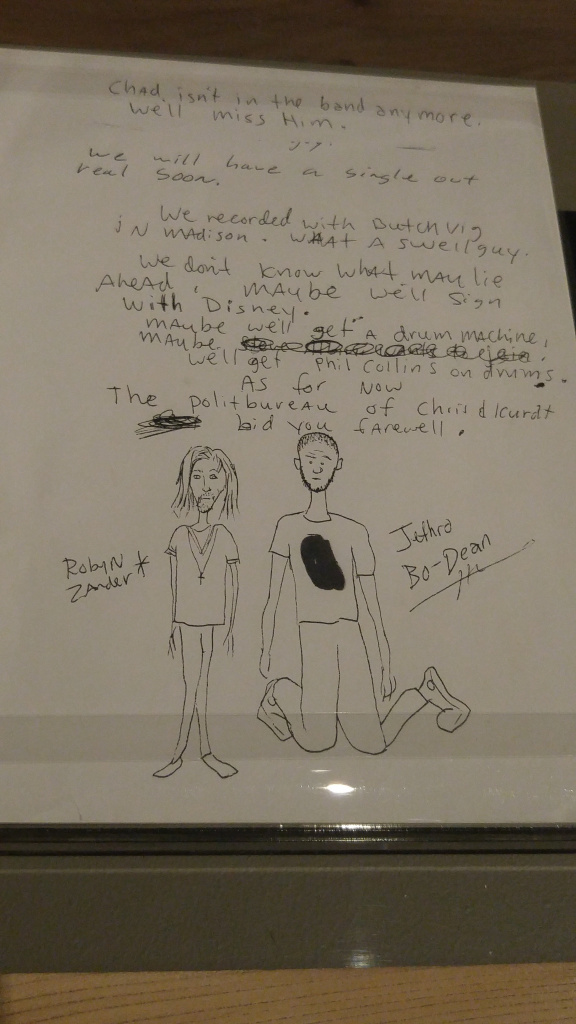 Chad isn't in the band anymore.
we'll miss Him.
we will have a single out
real soon.
We recorded with Butch Vig
iN MAdison. WhAT A swell guy.
We don't know whAt MAy lie
AheAd, MAybe we'll Sign
With Disney.
MAybe we'll get A drum MAchine,
MAybe
we'll get Phil Collins on drums.
As for Now
The politbureau of Chris & Kurdt
bid you fArewell.
RobyN
ZAnder
Jethro
Bo-Dean